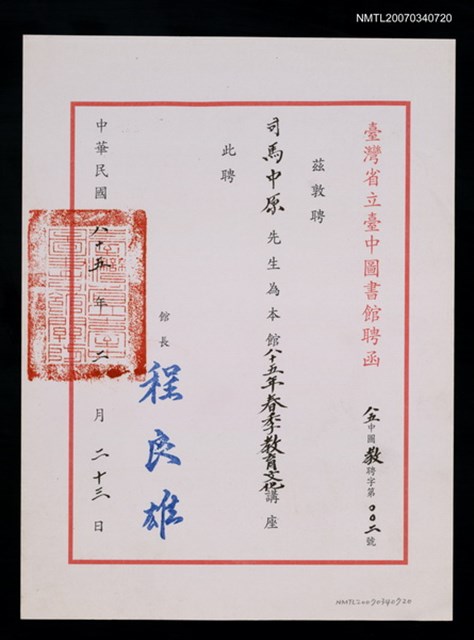 NMTL20070340720
臺灣省立臺中圖書館聘函
八五中圖教聘字第00二號
茲敦聘
司馬中原先生為本館八十五年春季教育文化講座
此聘
館長
程良雄
中華民國八十五年二月二十三日
NMTL20070340720